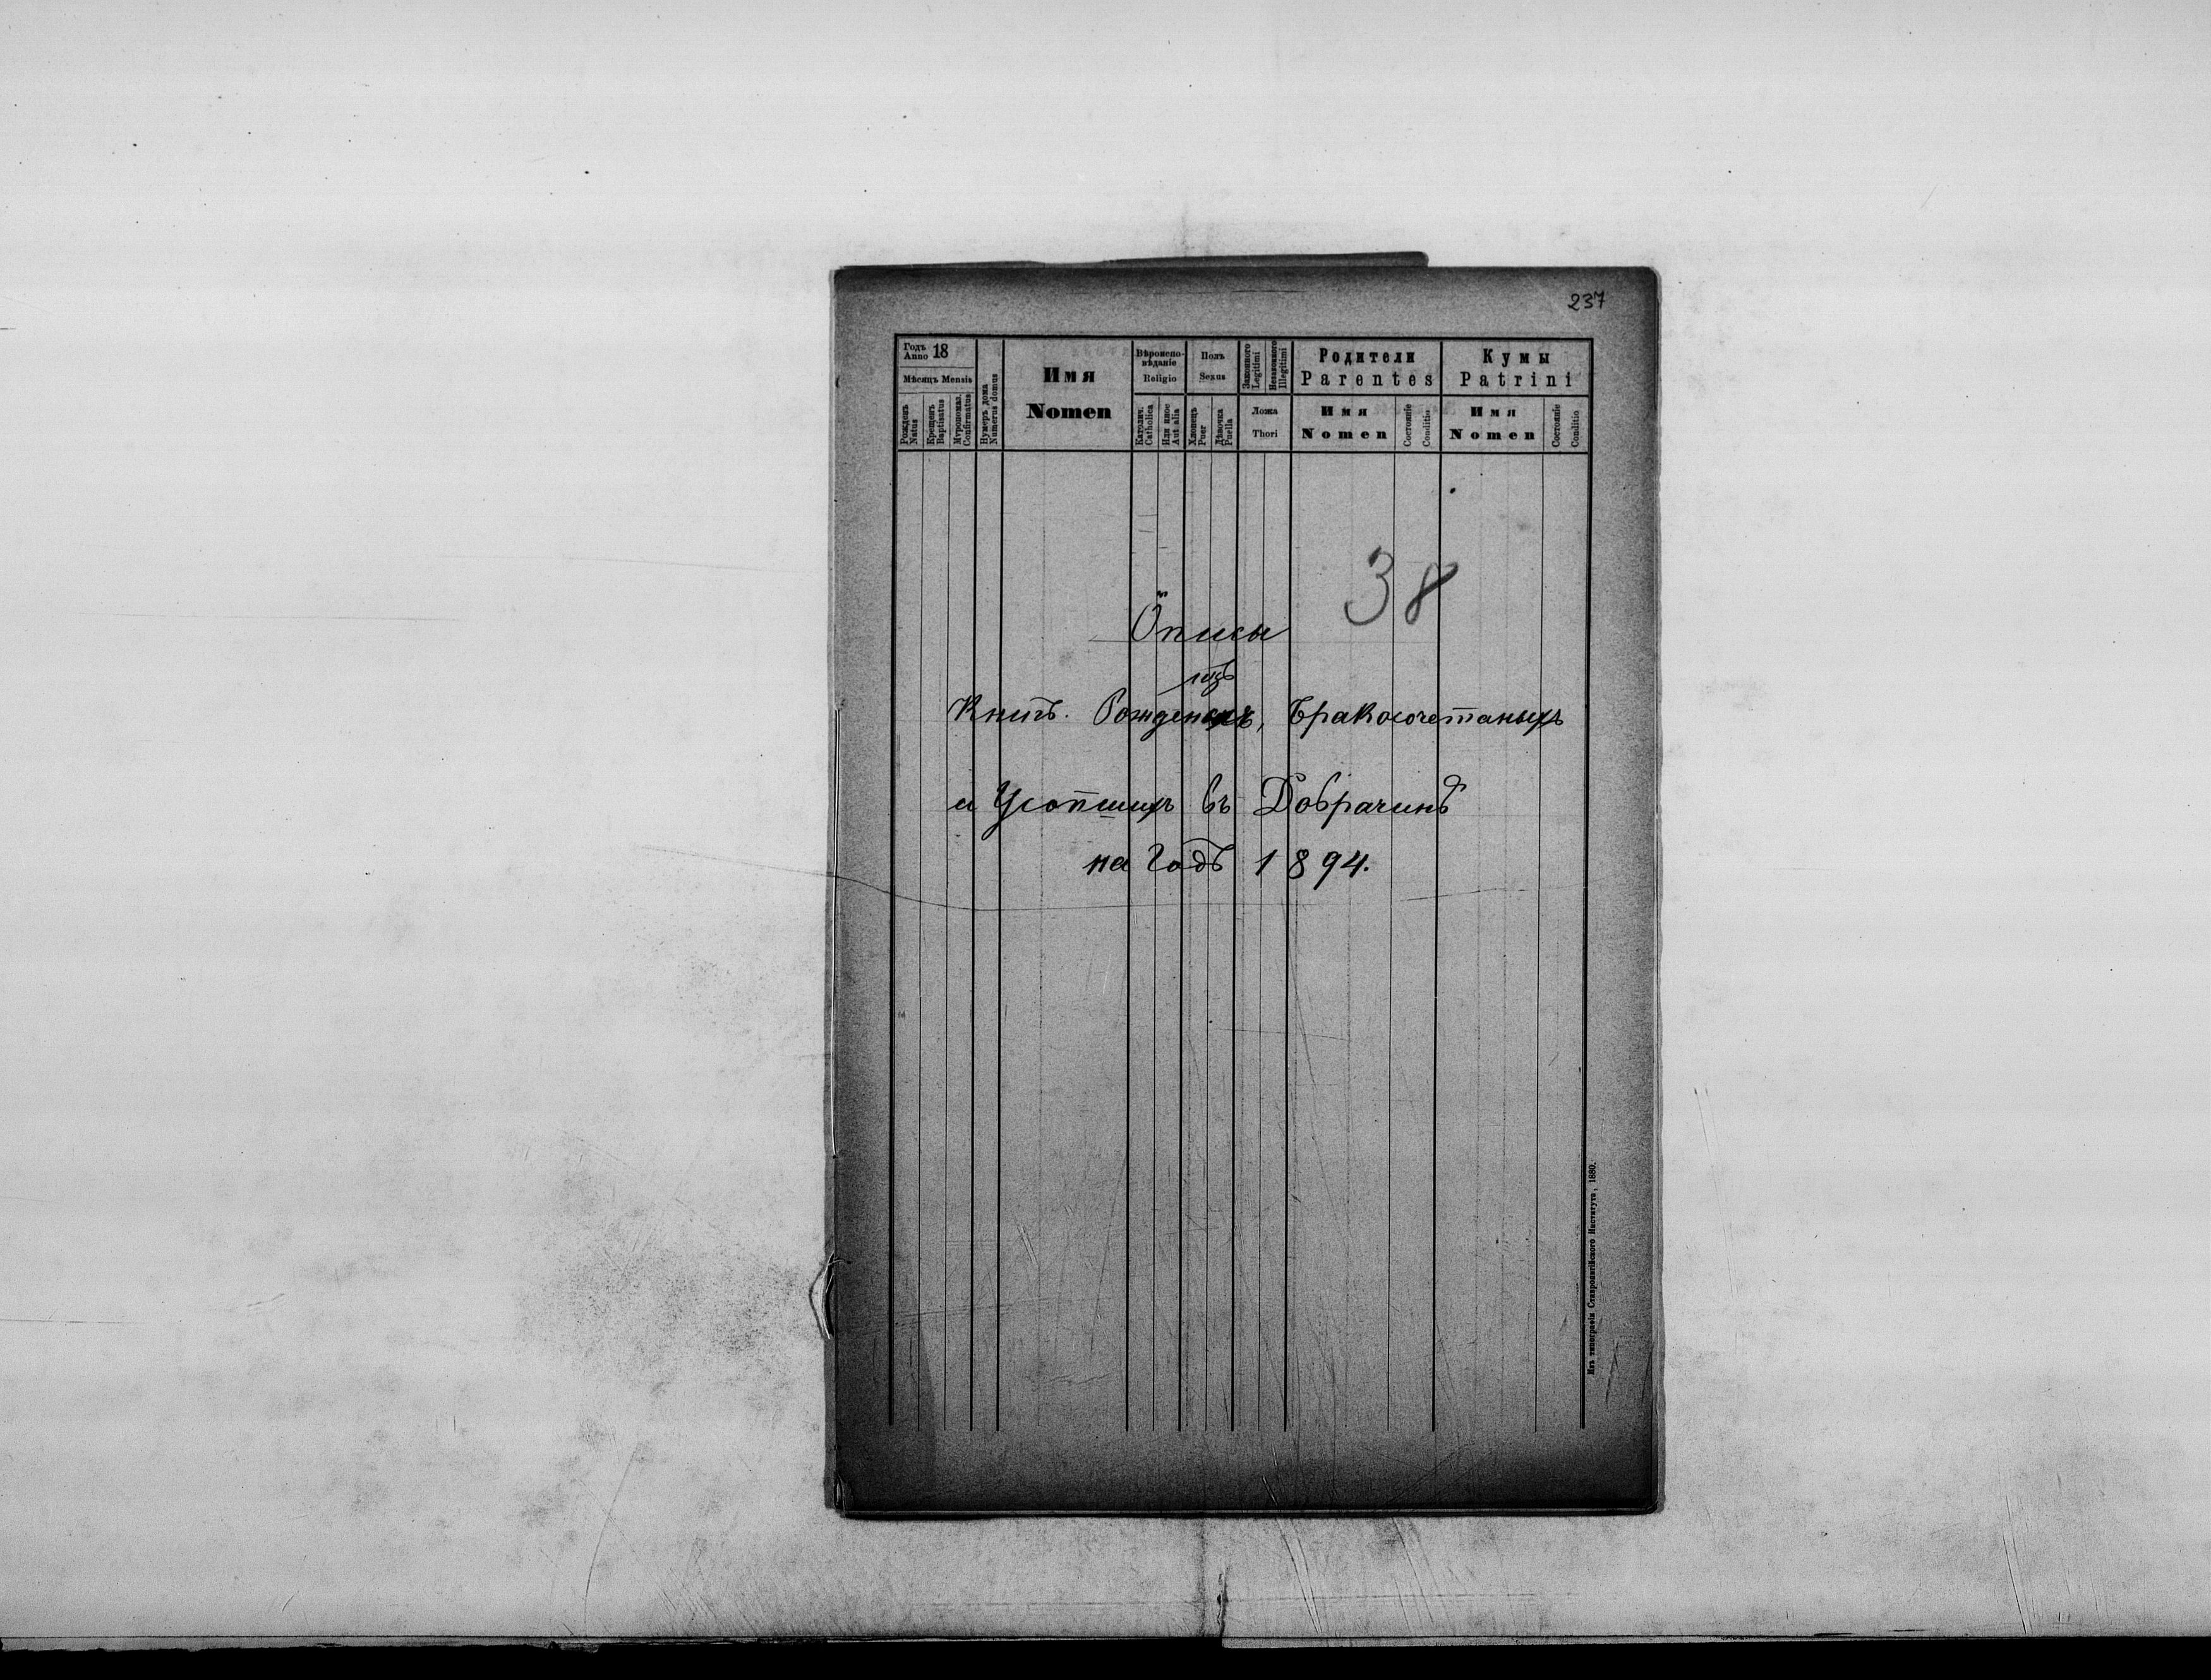 237
Годъ
Anno 18
Мѣсяцъ Mensis
Рожденъ
Natus
Крещенъ
Baptisatus
Мѵропомаз.
Confirmatus
Нумеръ дома
Numerus domus
Имя
Nomen
Вѣроиспо-
вѣданіе
Religio
Католич.
Catholica
Или иное
Aut alia
Полъ
Sexus
Хлопецъ
Puer
Дѣвочка
Puella
Законного
Legitimi
Незаконного
Illegitimi
Ложа
Thori
Родители
Parentes
Имя
Nomen
Состояніе
Conditio
Кумы
Patrini
Имя
Nomen
Состояніе
Conditio
38
Описы
изъ
Книгъ. Рожденныхъ, Бракосочетаныхъ
и Усопшихъ въ Добрачинѣ
на Годъ 1894.
Изъ типографіи Ставропигійского Института, 1880.